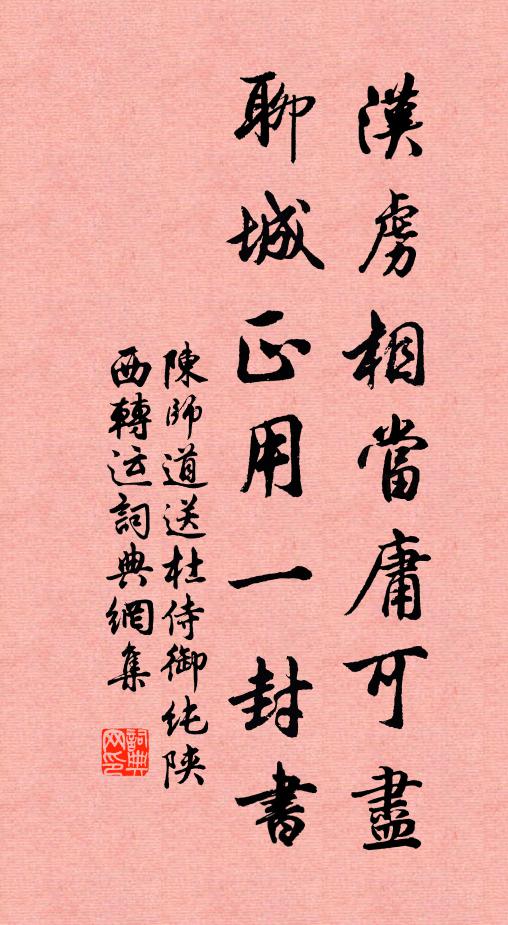 漢虜相當庸可盡
聊城正用一封書
陳師道送杜侍御純陝
西轉运詞典網集
詞典
网印